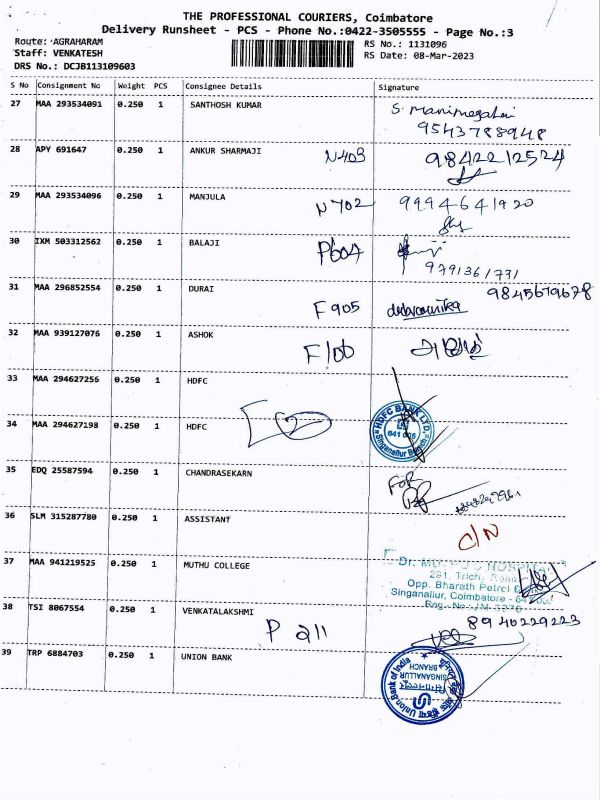 THE PROFESSIONAL COURIERS, Coimbatore
Delivery Runsheet - PCS - Phone No.:0422-3505555 - Page No.:3
Route: AGRAHARAM RS No.: 1131096
Staff: VENKATESH RS Date: 08-Mar-2023
DRS No.: DCJB113109603
S No Consignment No Weight PCS Consignee Details Signature
27 MAA 293534091 0.250 1 SANTHOSH KUMAR S. Manimegalai
9543788948
28 APY 691647 0.250 1 ANKUR SHARMAJI N403 9842212524
29 MAA 293534096 0.250 1 MANJULA N702 9994641920
30 IXM 503312562 0.250 1 BALAJI P604
9791361731
31 MAA 296852554 0.250 1 DURAI F905 9845679678
32 MAA 939127076 0.250 1 ASHOK F100
33 MAA 294627256 0.250 1 HDFC
34 MAA 294627198 0.250 1 HDFC HDFC BANK LTD. 641 005 Singanallur Branch
35 EDQ 25587594 0.250 1 CHANDRASEKARN FOR
36 SLM 315287780 0.250 1 ASSISTANT C/N
37 MAA 941219525 0.250 1 MUTHU COLLEGE Dr. HOSPITAL
291, Trichy Road
Opp. Bharath Petrol
Singanallur, Coimbatore -
Reg. No.
38 TSI 8067554 0.250 1 VENKATALAKSHMI P 211 8940229223
39 TRP 6884703 0.250 1 UNION BANK Union Bank of India
SINGANALLUR
BRANCH